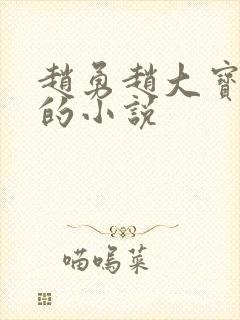 趙勇趙大寶
的小說
喵嗚菜